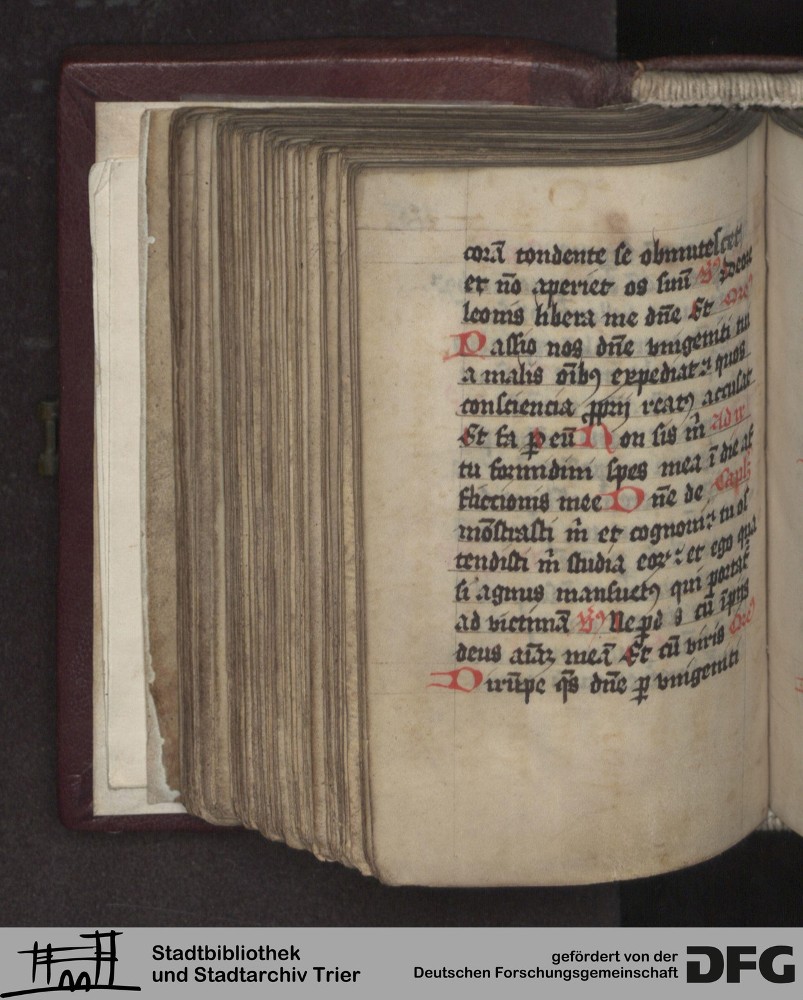 corā tondente se obmutescet
et nō aperiet os suū V̓ De ore
leonis libera me dn̄e Et Ore̓
Passio nos dn̄e vnigeniti tui
a malis oībꝯ expediat ⁊ quos
consciencia ꝓprij reatꝯ accusat
Et fa p eū Non sis m̄ Ad ix
tu formidini spes mea ī die af
flictionis mee Dn̄e de Capl̄
mōstrasti m̄ et cognoui ⁊ tu os
tendisti m̄ studia eoꝝ ⁊ et ego qua
si agnus mansuetꝯ qui portat̄
ad victimā V̓ Ne ꝑd s cū īpijs
deus aīaꝫ meā Et cū viris Ore̓
Dirūpe qs̄ dn̄e ꝑ vnigeniti
Stadtbibliothek
und Stadtarchiv Trier
gefördert von der
Deutschen Forschungsgemeinschaft
DFG